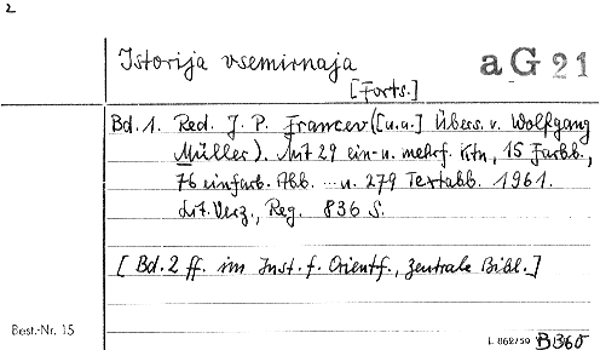 2
Istorija vsemirnaja
[Forts.]
aG 21
Bd. 1. Red. J. P. Francev ([u.a.] Übers. v. Wolfgang
Müller). Mit 29 ein- u. mehrf. Ktn, 15 Farbb.,
76 einfarb. Abb. ... u. 279 Textabb. 1961.
Lit. Verz., Reg. 836 S.
[Bd. 2 ff. im Inst. f. Orientf., zentrale Bibl.]
Best.-Nr. 15
L 862/59 B 360